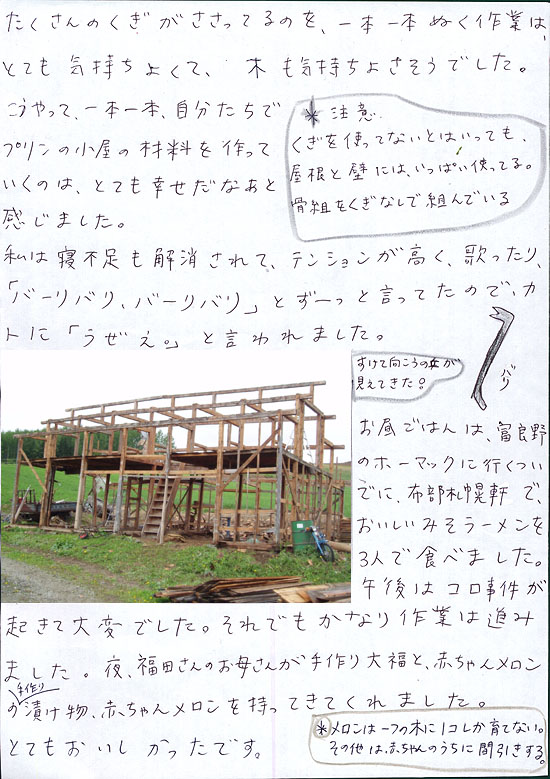 たくさんのくぎがささってるのを、一本一本ぬく作業は、
とても気持ちよくて、木も気持ちよさそうでした。
こうやって、一本一本、自分たちで
プリンの小屋の材料を作って
いくのは、とても幸せだなぁと
感じました。
＊注意
くぎを使ってないとはいっても、
屋根と壁には、いっぱい使ってる。
骨組をくぎなしで組んでいる
私は寝不足も解消されて、テンションが高く、歌ったり、
「バーリバリ、バーリバリ」とずーっと言ってたので、カ
トに「うぜえ。」と言われました。
すけて向こうの丘が
見えてきた？
バリ
お昼ごはんは、富良野
のホーマックに行くつい
でに、布部札幌軒で、
おいしいみそラーメンを
3人で食べました。
午後はコロ事件が
起きて大変でした。それでもかなり作業は進み
ました。夜、福田さんのお母さんが手作り大福と、赤ちゃんメロン
手作り
の漬け物、赤ちゃんメロンを持ってきてくれました。
とてもおいしかったです。
＊メロンは一つの木に1コしか育てない。
その他は、赤ちゃんのうちに間引きする。